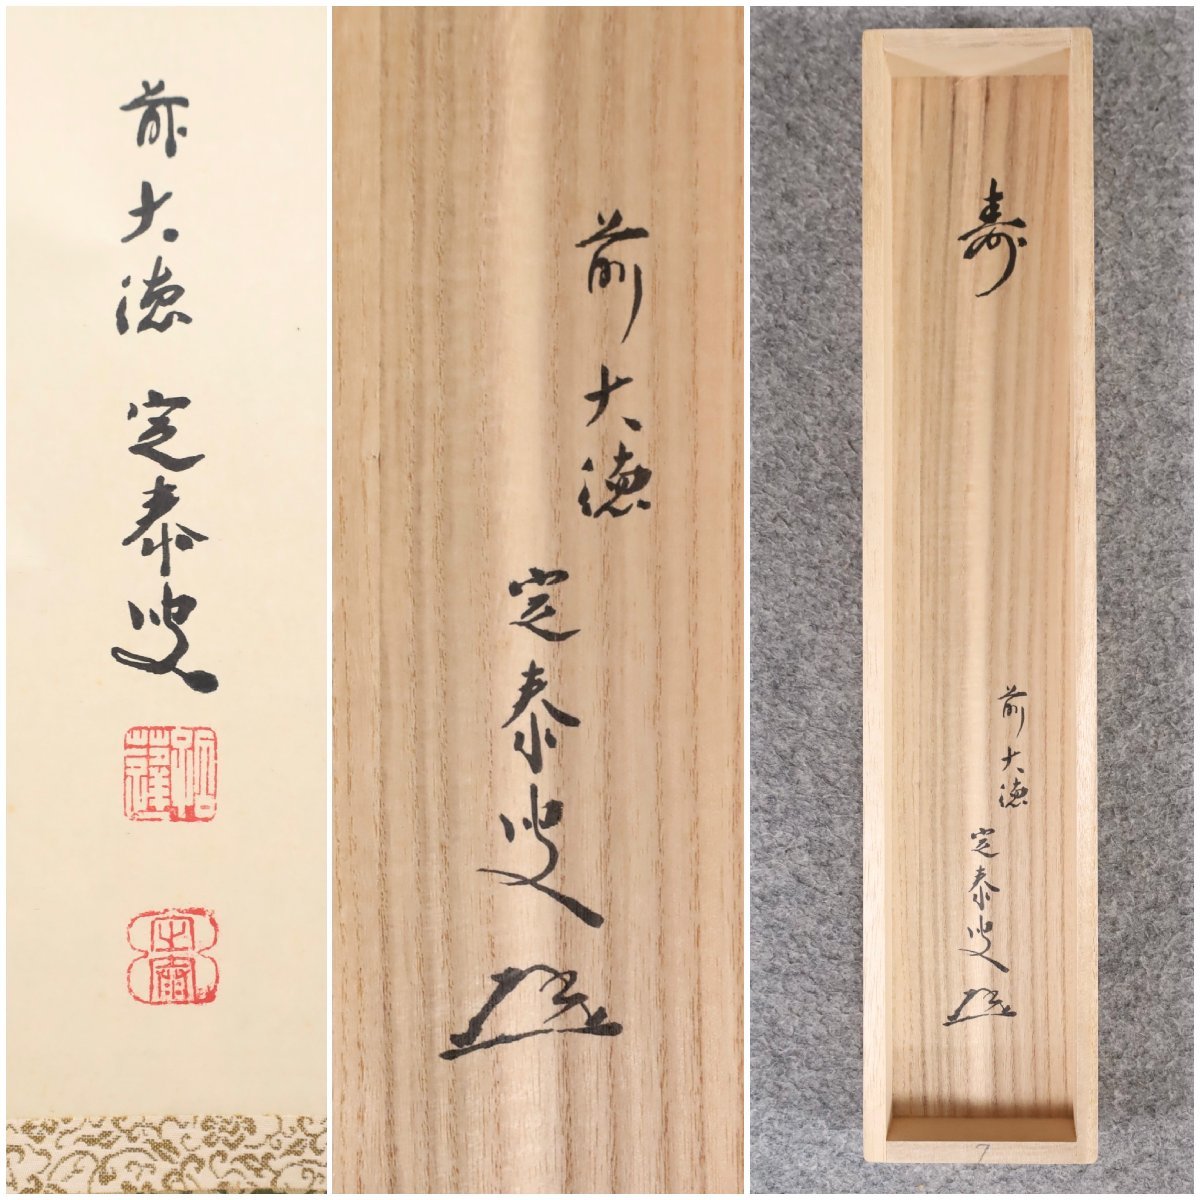 前大徳 定泰叟
前大徳
定泰叟
寿
前大徳
定泰叟
7